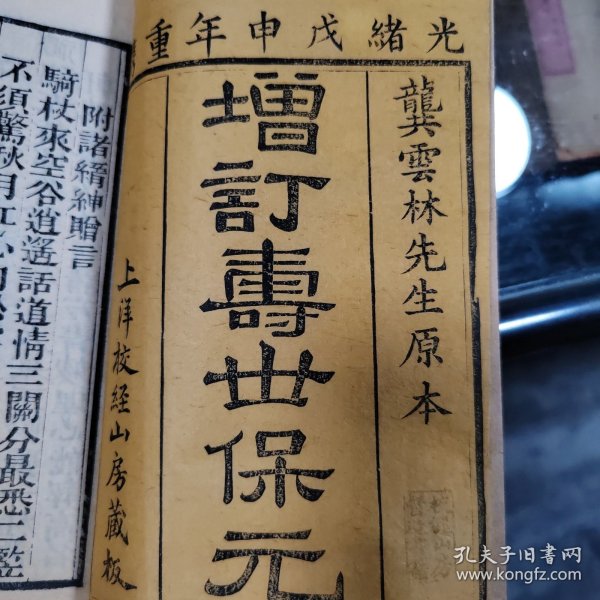 光緒戊申年重
龔雲林先生原本
增訂壽世保元
上洋校經山房藏板
附諸縉紳贈言
騎杖來空谷道遥話道情三關分最悉二
不須驚秋月江
孔夫子旧書网
www.kongfz.com